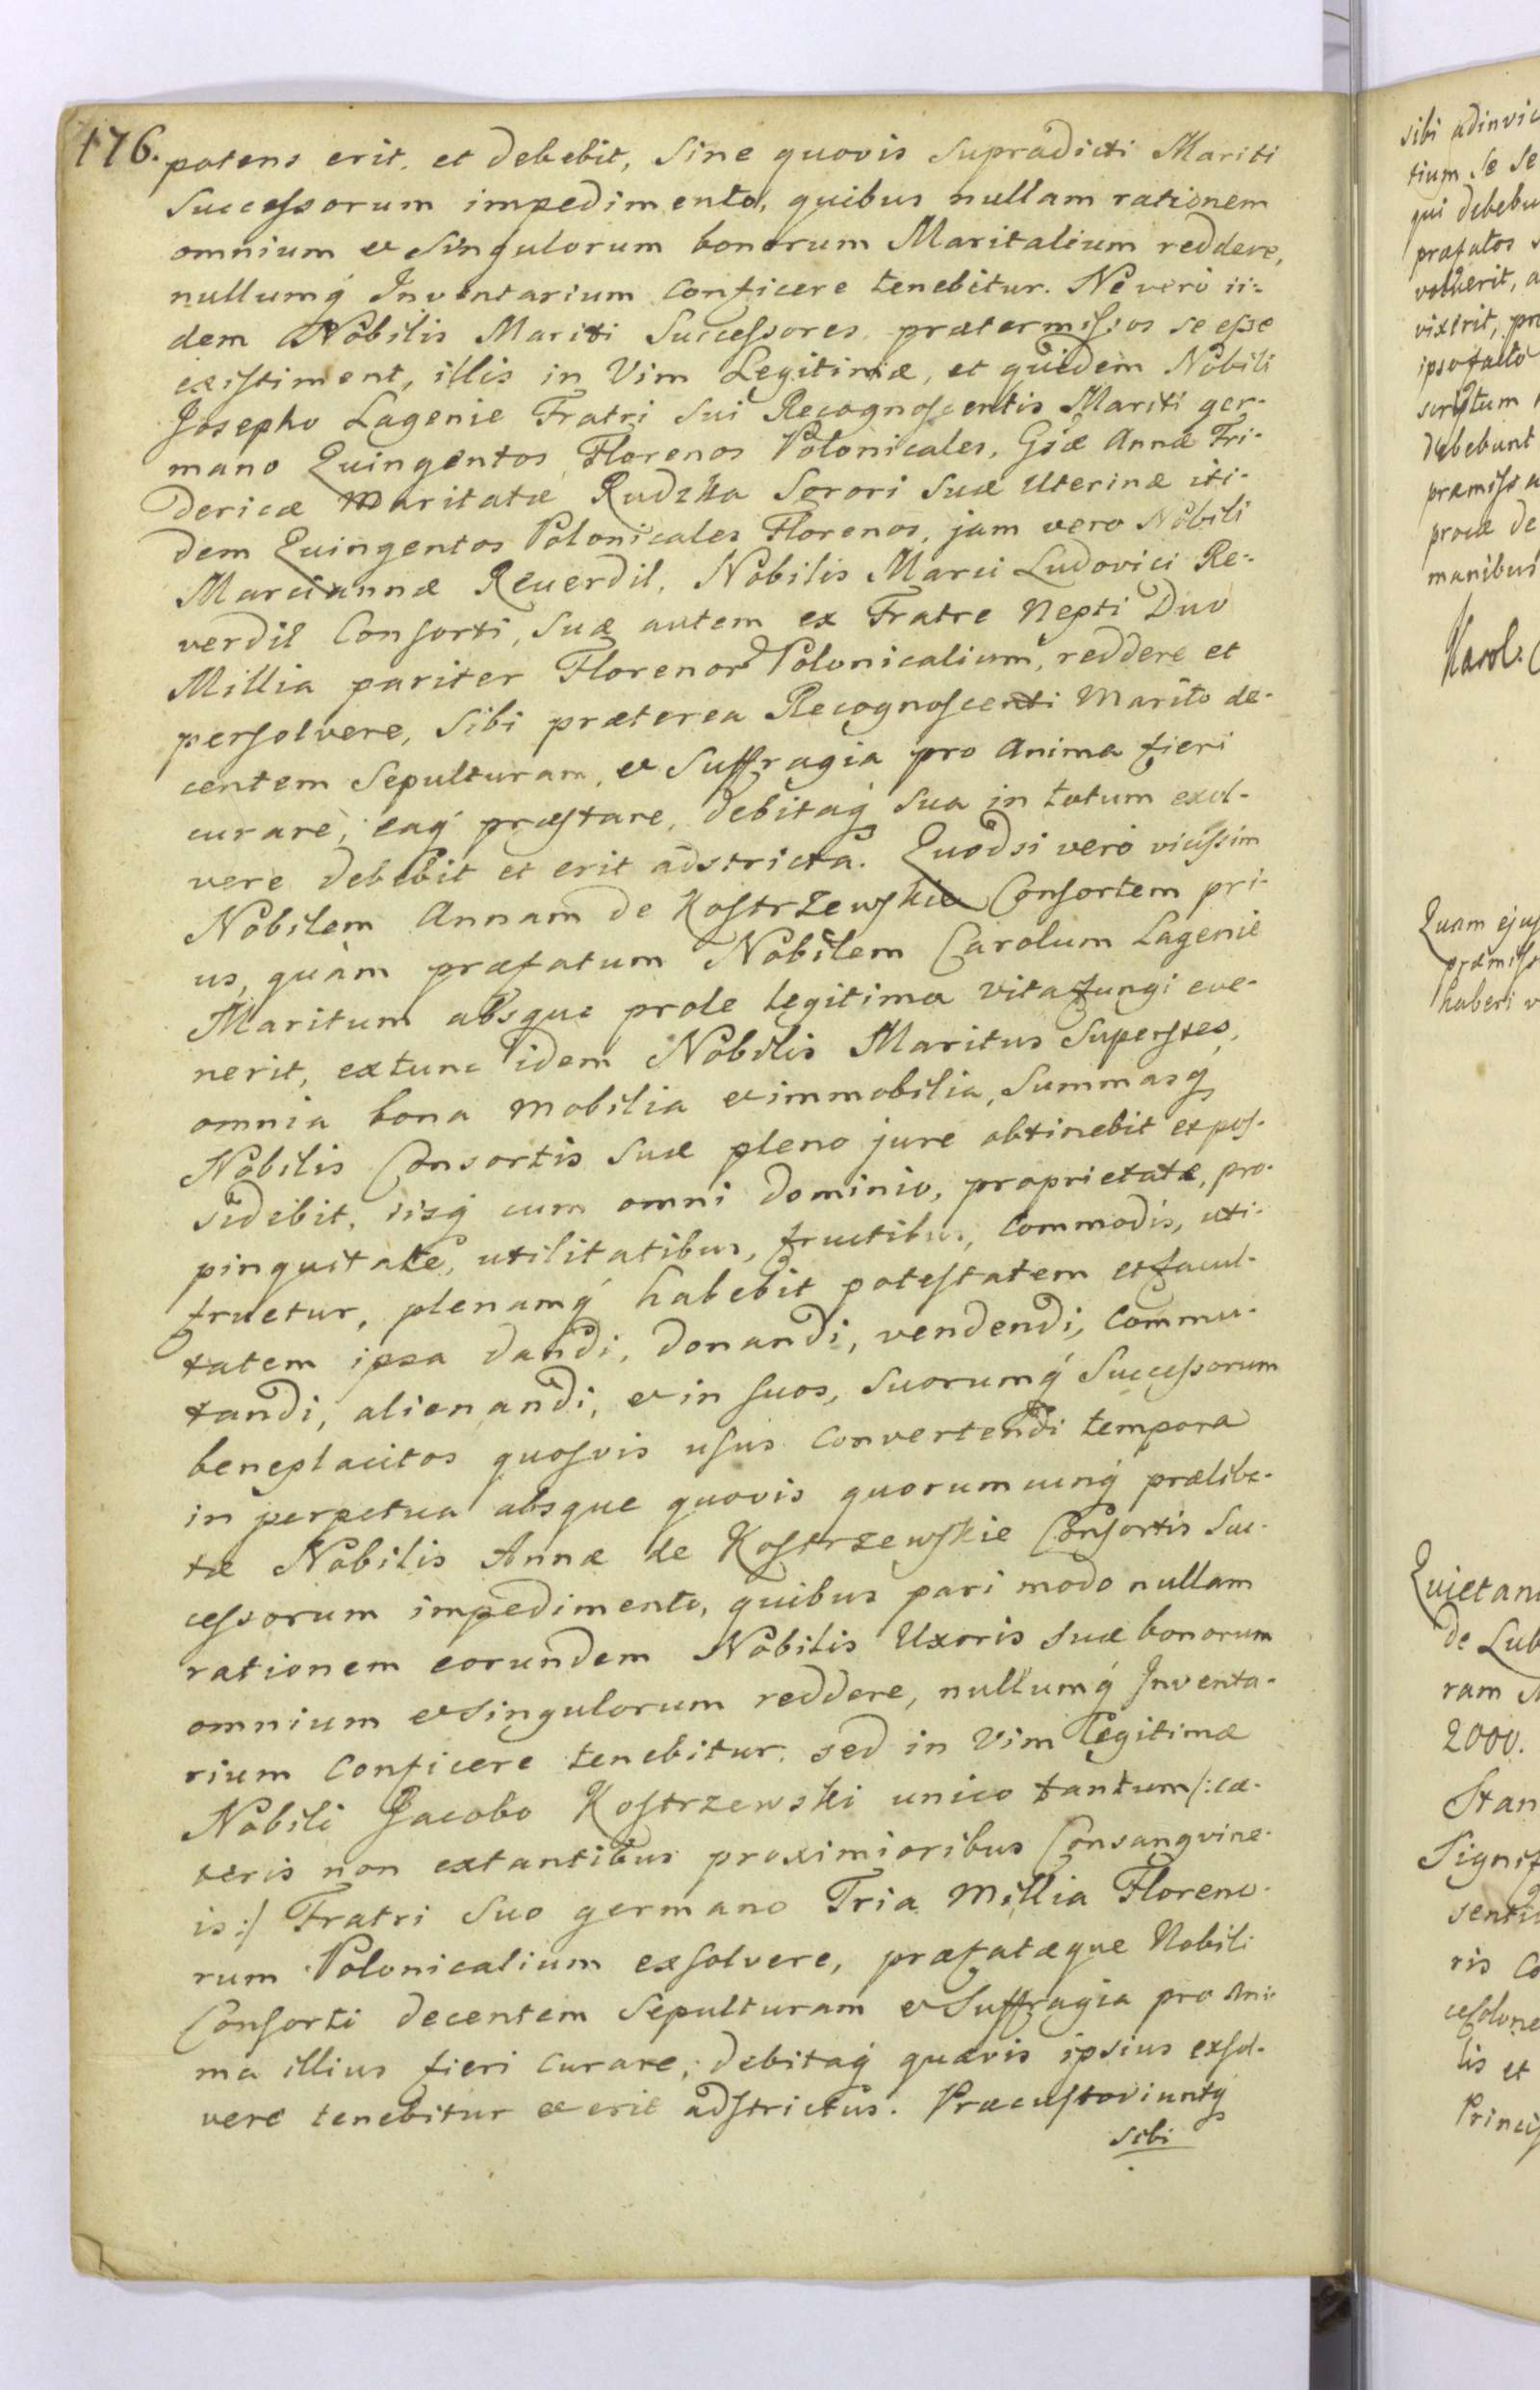 176. potens erit, et debebit, Sine quovis Supradicti Mariti
Successorum impedimento, quibus nullam rationem
omnium et Singulorum bonorum Maritalium reddere,
nullumq́ Inventarium Conficere tenebitur. Ne vero ii=
dem Nobilis Mariti Successores prætermissos se esse
existiment, illis in Vim Legitimæ, et quidem Nobili
Josepho Lagenie Fratri Sui Recognoscentis Mariti ger-
mano Quingentos Florenos Polonicales, Gsæ Annæ Fri-
dericæ Maritatæ Rudzka Sorori Suæ Uterinæ iti-
dem Quingentos Polonicales Florenos, jam vero Nobili
Mariannæ Reverdil, Nobilis Marci Ludovici Re-
verdil Consorti, Suæ autem ex Fratre Nepti Duo
Millia pariter Florenor Polonicalium, reddere et
persolvere, Sibi præterea Recognoscenti Marito de-
centem Sepulturam, et Suffragia pro Anima fieri
curare, eaq́ præstare, debitaq́ Sua in totum exol-
vere debebit et erit adstricta. Quodsi vero vicissim
Nobilem Annam de Kostrzewskie Consortem pri-
us, quàm præfatum Nobilem Carolum Lagenie
Maritum absque prole legitima vita fungi eve-
nerit, extunc idem Nobilis Maritus Superstes,
omnia bona Mobilia et immobilia, Summasq́
Nobilis Consortis Suæ pleno jure obtinebit et pos-
sidebit, iisq́ cum omni dominio, proprietate, pro-
pinquitate, utilitatibus, fructibus, Commodis, uti-
fruetur, plenamq́ habebit potestatem et facul-
tatem ipsa dandi, donandi, vendendi, Commu-
tandi, alienandi, et in suos, Suorumq́ Successorum
beneplacitos quosvis usus Convertendi tempora
in perpetua absque quovis quorumcunq́ præliba-
tæ Nobilis Annæ de Kostrzewskie Consortis Suc-
cessorum impedimento, quibus pari modo nullam
rationem eorundem Nobilis Uxoris Suæ bonorum
omnium et Singulorum reddere, nullumq́ Inventa-
rium Conficere tenebitur. sed in Vim Legitimæ
Nobili Jacobo Kostrzewski unico tantum /:cæ-
teris non extantibus proximioribus Consangvine-
is:/ Fratri Suo germano Tria Millia Floreno-
rum Polonicalium exsolvere, præfatæque Nobili
Consorti decentem Sepulturam et Suffragia pro Ani-
ma illius fieri Curare, debitaq́ quævis ipsius exsol-
vere tenebitur et erit adstrictus. Præcustodiuntq́
sibi
sibi adinvic
tium se se
qui debebu
præfatos
voluerit, a
vixerit, pr
ipso facto
scriptum
debebunt
præmissa
proce de
manibus
Karol.
Quam ejus
præmiss
haberi v
Quietan
de Lub
ram
2000.
Stan
Signif
senti
ris Co
lis et
Princip